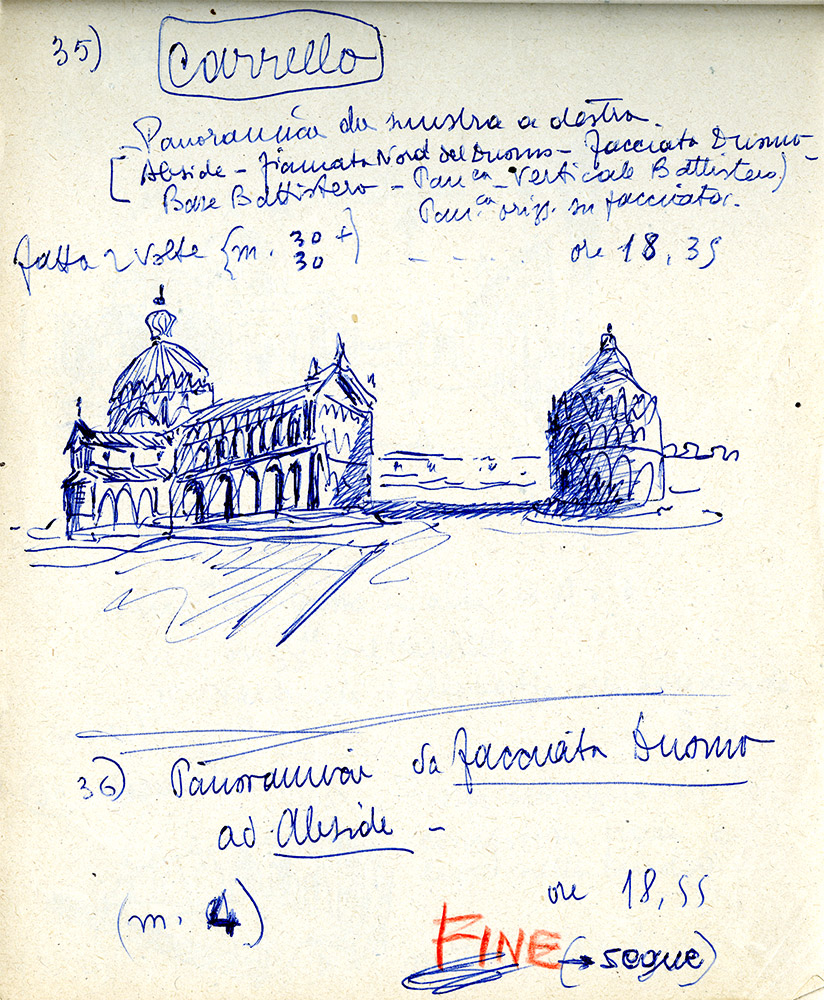 35) Carrello
- Panoramica da sinistra a destra.
[Abside - fiancata Nord del Duomo - Facciata Duomo -
Base Battistero - Pan.ca - Verticale Battistero)
Pan.ca orizz. su facciata.
fatta 2 volte {m. 30 + }
30
ore 18,35
36) Panoramica da facciata Duomo
ad Abside -
ore 18,55
(m. 4)
FINE (→ segue)